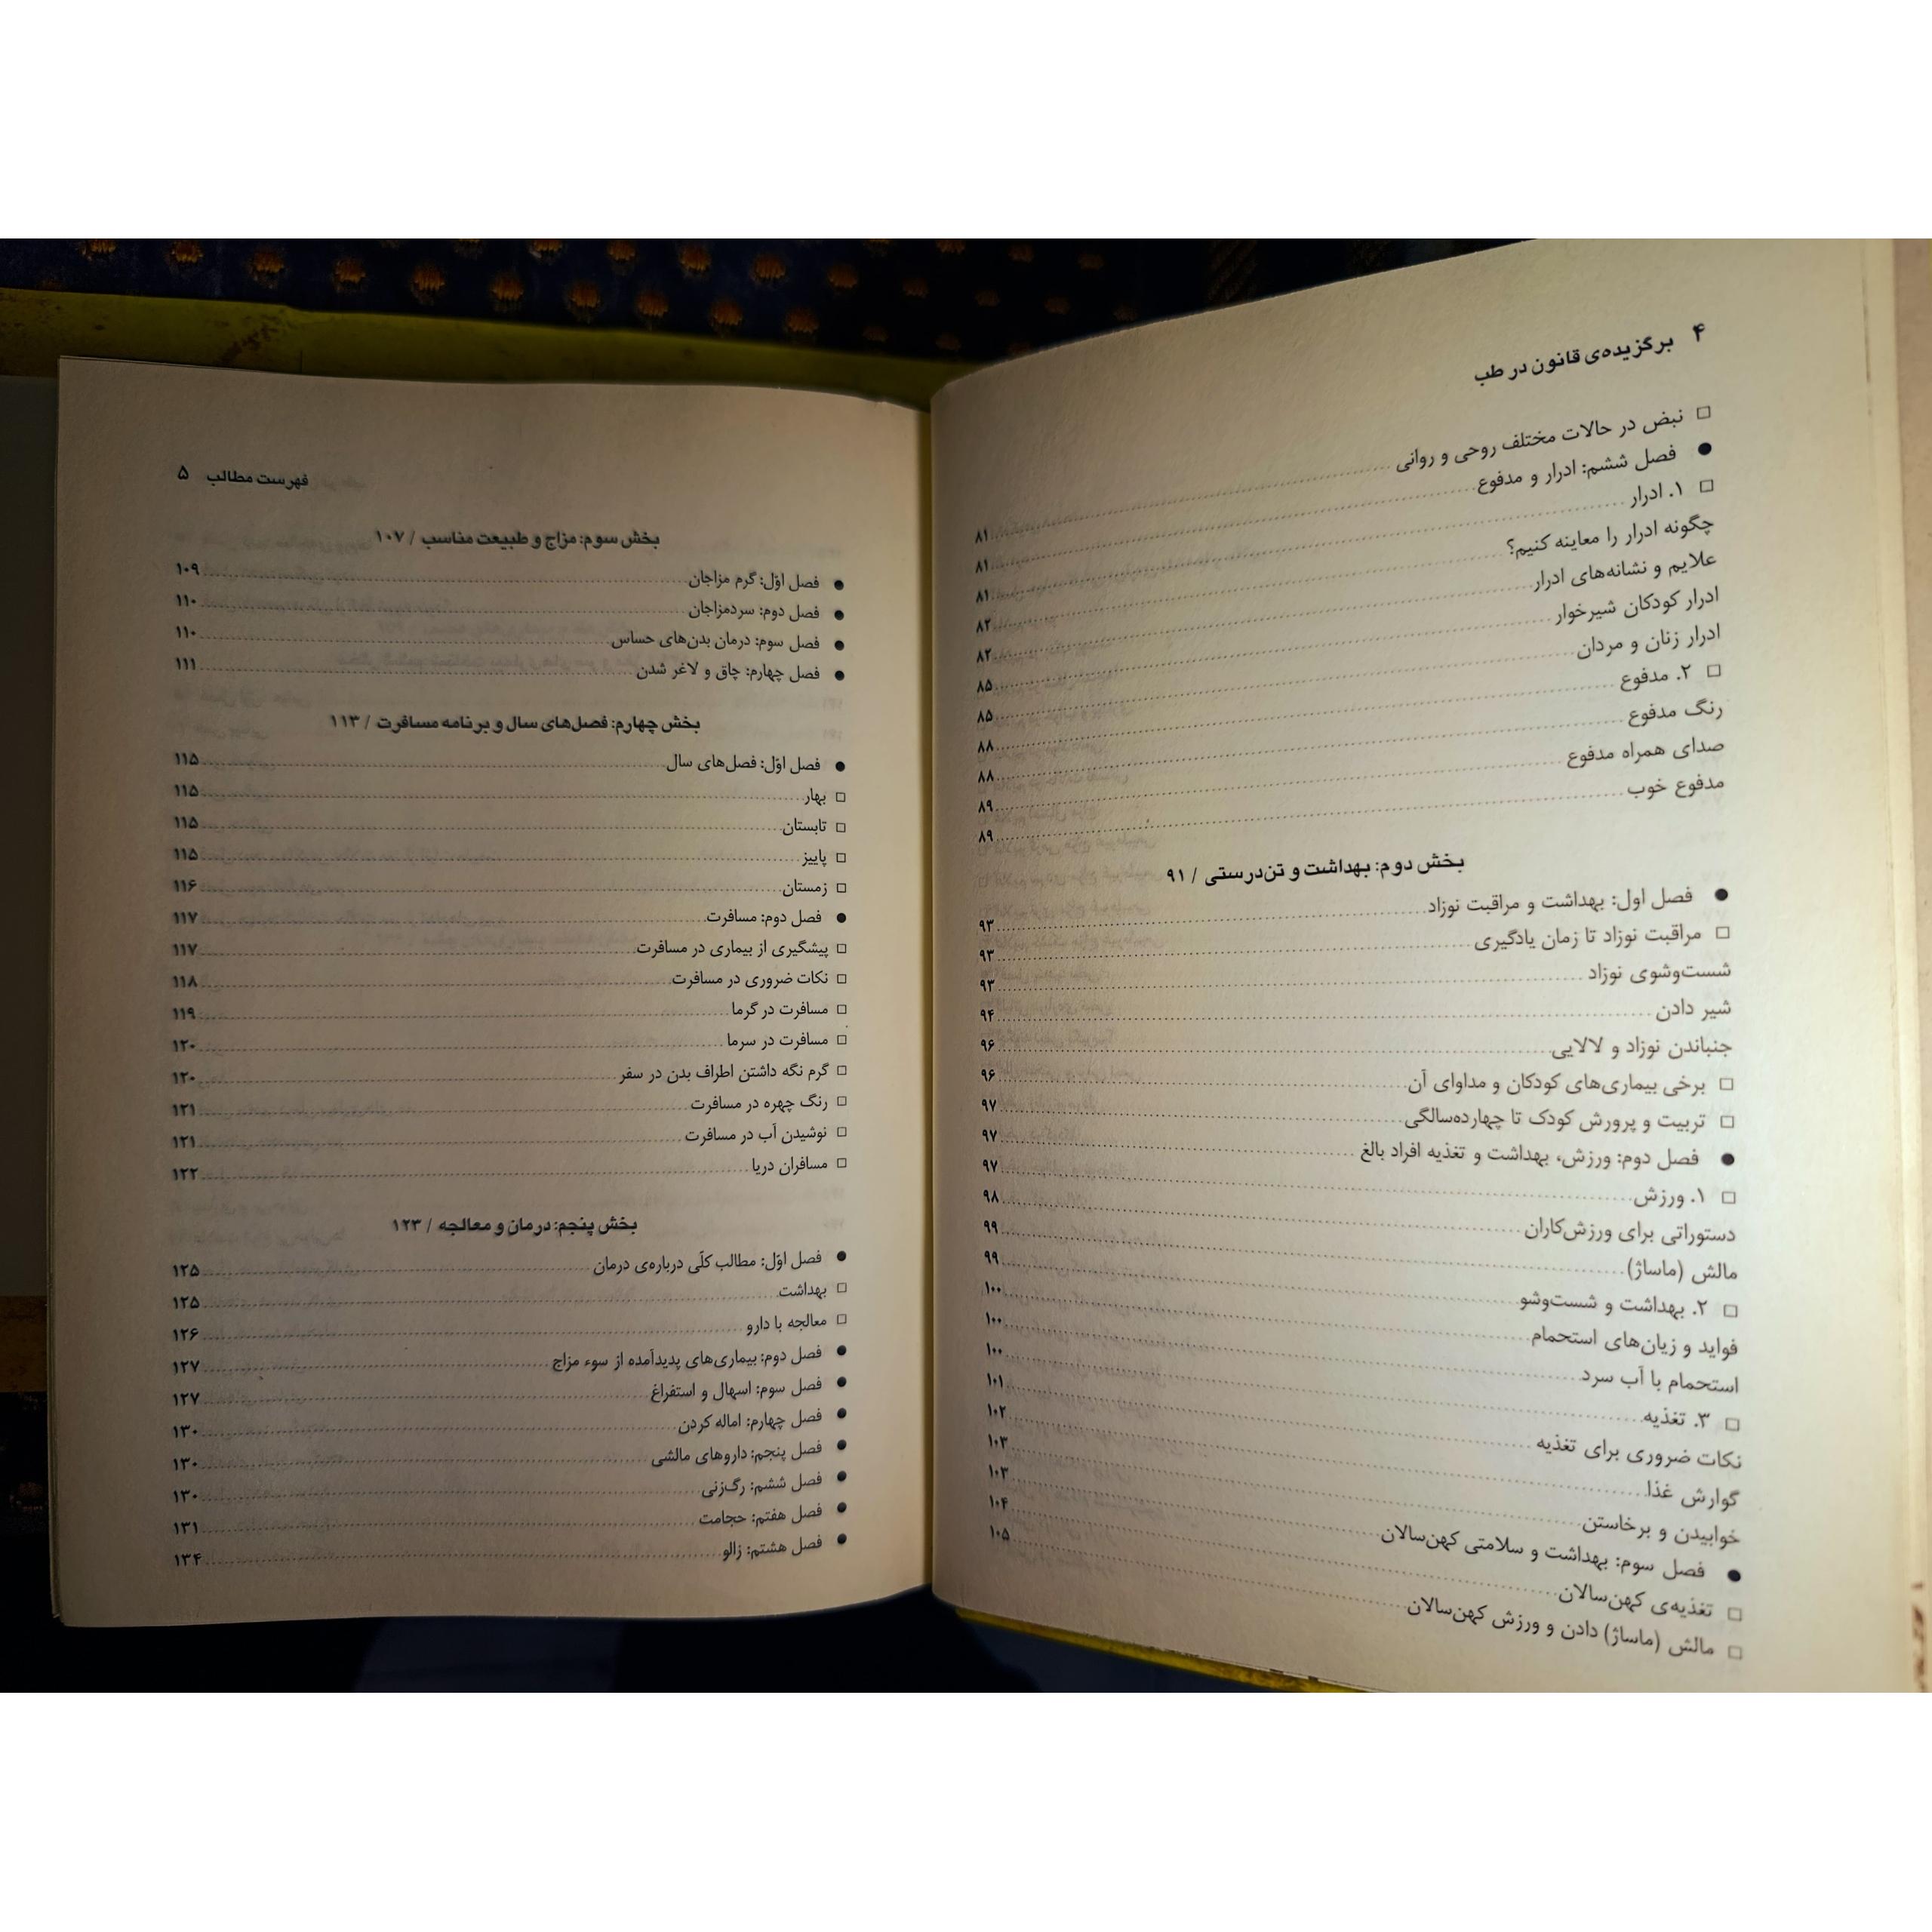 ۴ برگزیده‌ی قانون در طب
□ نبض در حالات مختلف روحی و روانی ........ ۸۱
● فصل ششم: ادرار و مدفوع ........ ۸۱
□ ۱. ادرار ........ ۸۱
چگونه ادرار را معاینه کنیم؟ ........ ۸۲
علایم و نشانه‌های ادرار ........ ۸۲
ادرار کودکان شیرخوار ........ ۸۵
ادرار زنان و مردان ........ ۸۵
□ ۲. مدفوع ........ ۸۸
رنگ مدفوع ........ ۸۸
صدای همراه مدفوع ........ ۸۹
مدفوع خوب ........ ۸۹
بخش دوم: بهداشت و تن‌درستی / ۹۱
● فصل اول: بهداشت و مراقبت نوزاد ........ ۹۳
□ مراقبت نوزاد تا زمان یادگیری ........ ۹۳
شست‌وشوی نوزاد ........ ۹۳
شیر دادن ........ ۹۴
جنباندن نوزاد و لالایی ........ ۹۶
□ برخی بیماری‌های کودکان و مداوای آن ........ ۹۶
□ تربیت و پرورش کودک تا چهارده‌سالگی ........ ۹۷
● فصل دوم: ورزش، بهداشت و تغذیه افراد بالغ ........ ۹۷
□ ۱. ورزش ........ ۹۷
دستوراتی برای ورزش‌کاران ........ ۹۸
مالش (ماساژ) ........ ۹۹
□ ۲. بهداشت و شست‌وشو ........ ۹۹
فواید و زیان‌های استحمام ........ ۱۰۰
استحمام با آب سرد ........ ۱۰۰
□ ۳. تغذیه ........ ۱۰۰
نکات ضروری برای تغذیه ........ ۱۰۱
گوارش غذا ........ ۱۰۲
خوابیدن و برخاستن ........ ۱۰۳
● فصل سوم: بهداشت و سلامتی کهن‌سالان ........ ۱۰۳
□ تغذیه‌ی کهن‌سالان ........ ۱۰۴
□ مالش (ماساژ) دادن و ورزش کهن‌سالان ........ ۱۰۵
فهرست مطالب ۵
بخش سوم: مزاج و طبیعت مناسب / ۱۰۷
● فصل اوّل: گرم مزاجان ........ ۱۰۹
● فصل دوم: سردمزاجان ........ ۱۱۰
● فصل سوم: درمان بدن‌های حساس ........ ۱۱۰
● فصل چهارم: چاق و لاغر شدن ........ ۱۱۱
بخش چهارم: فصل‌های سال و برنامه مسافرت / ۱۱۳
● فصل اوّل: فصل‌های سال ........ ۱۱۵
□ بهار ........ ۱۱۵
□ تابستان ........ ۱۱۵
□ پاییز ........ ۱۱۵
□ زمستان ........ ۱۱۶
● فصل دوم: مسافرت ........ ۱۱۷
□ پیشگیری از بیماری در مسافرت ........ ۱۱۷
□ نکات ضروری در مسافرت ........ ۱۱۸
□ مسافرت در گرما ........ ۱۱۹
□ مسافرت در سرما ........ ۱۲۰
□ گرم نگه داشتن اطراف بدن در سفر ........ ۱۲۰
□ رنگ چهره در مسافرت ........ ۱۲۱
□ نوشیدن آب در مسافرت ........ ۱۲۱
□ مسافران دریا ........ ۱۲۲
بخش پنجم: درمان و معالجه / ۱۲۳
● فصل اوّل: مطالب کلّی درباره‌ی درمان ........ ۱۲۵
□ بهداشت ........ ۱۲۵
□ معالجه با دارو ........ ۱۲۶
● فصل دوم: بیماری‌های پدیدآمده از سوء مزاج ........ ۱۲۷
● فصل سوم: اسهال و استفراغ ........ ۱۲۷
● فصل چهارم: اماله کردن ........ ۱۳۰
● فصل پنجم: داروهای مالشی ........ ۱۳۰
● فصل ششم: رگ‌زنی ........ ۱۳۰
● فصل هفتم: حجامت ........ ۱۳۱
● فصل هشتم: زالو ........ ۱۳۴